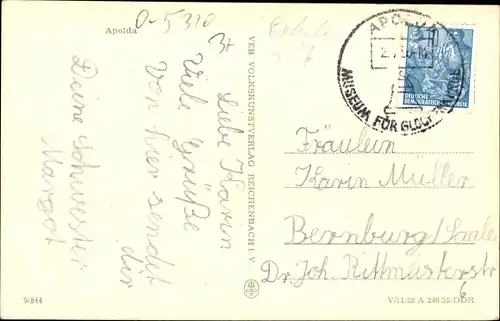 Apolda
0-5310
Liebe Karin
Viele Grüße
von hier sendet
dir
Deine Schwester
Margot
VEB VOLKSKUNSTVERLAG REICHENBACH I. V.
APOLDA
MUSEUM FÜR GLOCKENKUNDE
DEUTSCHE
DEMOKRATISCHE REPUBLIK
Fräulein
Karin Müller
Bernburg/Saale
Dr. Joh. Rittmeisterstr
6
9/844
V/11/28 A 246 55/DDR